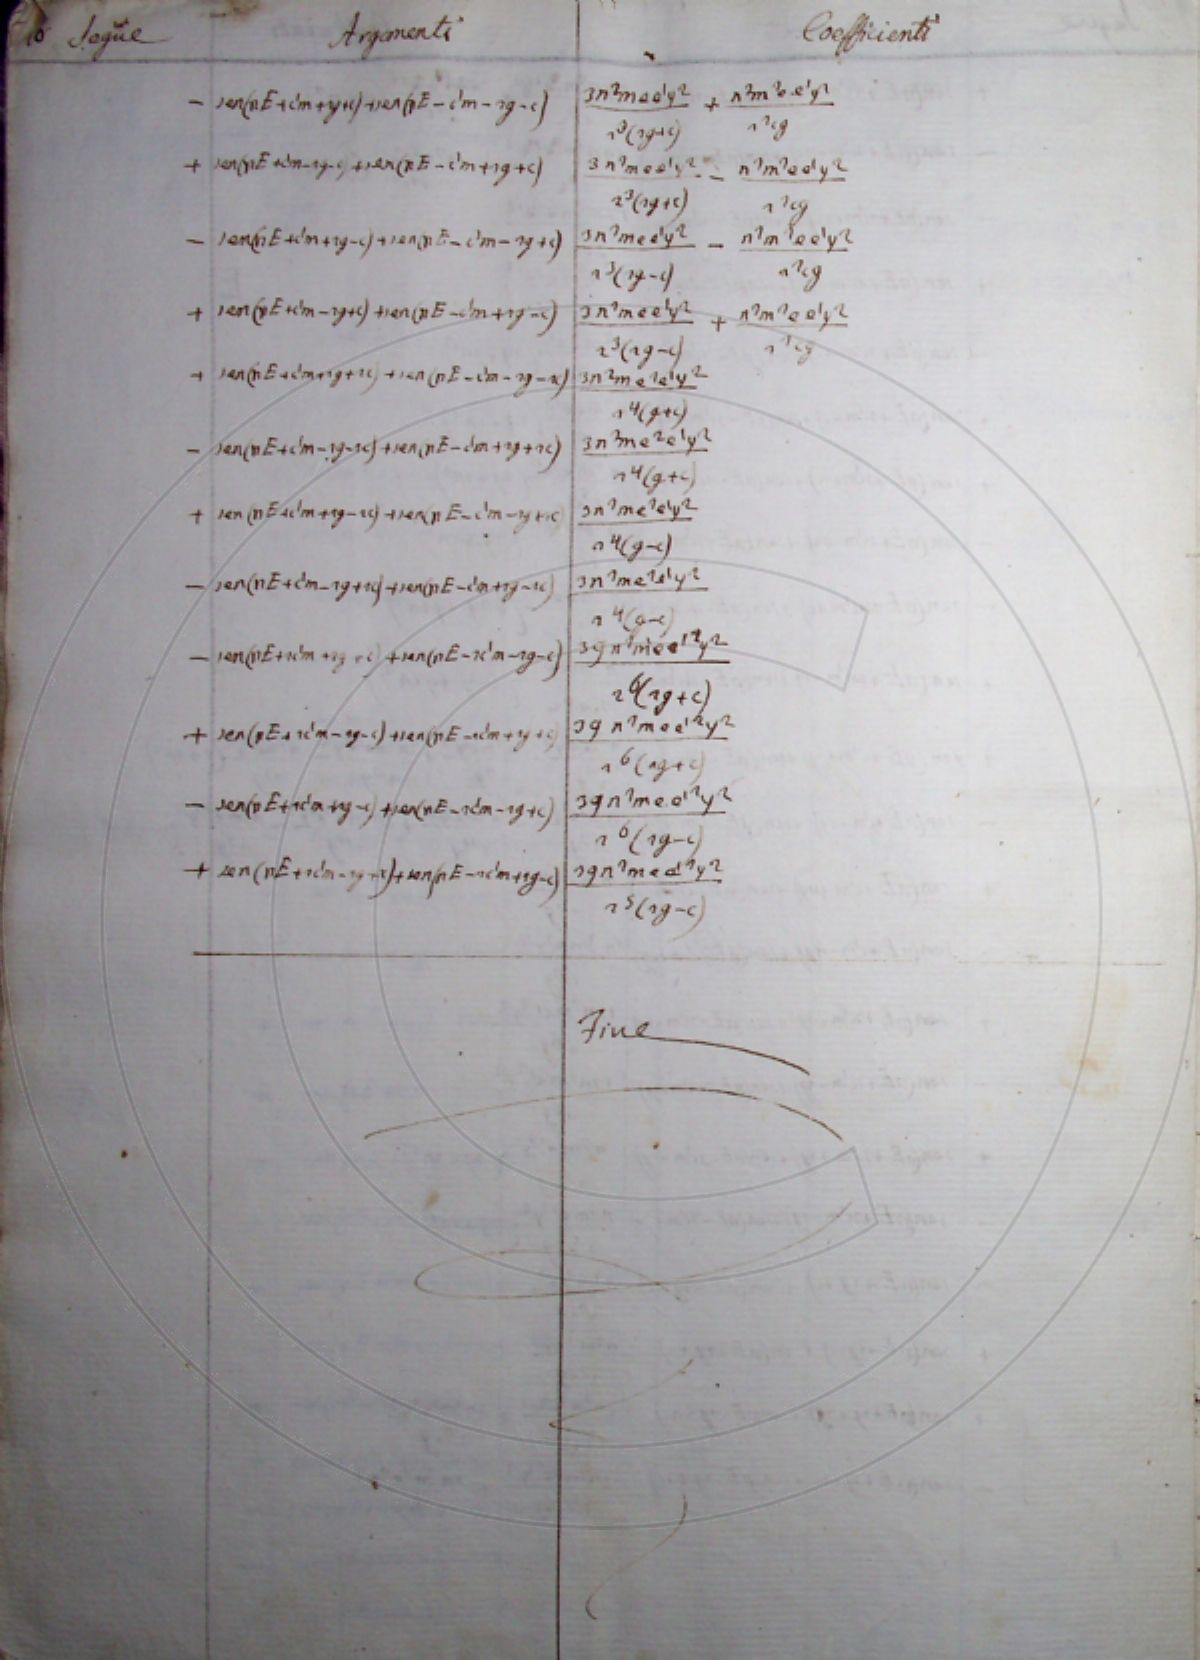 Segue Argomenti Coefficienti
− sen(pE+c'm+2g+c)+sen(pE−c'm−2g−c) 3n²mee'γ² / 2³(2g+c) + n²m²ee'γ² / 2²cg
+ sen(pE+c'm−2g−c)+sen(pE−c'm+2g+c) 3n²mee'γ² / 2³(2g+c) − n²m²ee'γ² / 2²cg
− sen(pE+c'm+2g−c)+sen(pE−c'm−2g+c) 3n²mee'γ² / 2³(2g−c) − n²m²ee'γ² / 2²cg
+ sen(pE+c'm−2g+c)+sen(pE−c'm+2g−c) 3n²mee'γ² / 2³(2g−c) + n²m²ee'γ² / 2²cg
+ sen(pE+c'm+2g+2c)+sen(pE−c'm−2g−2c) 3n²me²e'γ² / 2⁴(g+c)
− sen(pE+c'm−2g−2c)+sen(pE−c'm+2g+2c) 3n²me²e'γ² / 2⁴(g+c)
+ sen(pE+c'm+2g−2c)+sen(pE−c'm−2g+2c) 3n²me²e'γ² / 2⁴(g−c)
− sen(pE+c'm−2g+2c)+sen(pE−c'm+2g−2c) 3n²me²e'γ² / 2⁴(g−c)
− sen(pE+2c'm+2g+c)+sen(pE−2c'm−2g−c) 39n²mee'²γ² / 2⁶(2g+c)
+ sen(pE+2c'm−2g−c)+sen(pE−2c'm+2g+c) 39n²mee'²γ² / 2⁶(2g+c)
− sen(pE+2c'm+2g−c)+sen(pE−2c'm−2g+c) 39n²mee'²γ² / 2⁶(2g−c)
+ sen(pE+2c'm−2g+c)+sen(pE−2c'm+2g−c) 39n²mee'²γ² / 2⁵(2g−c)
Fine